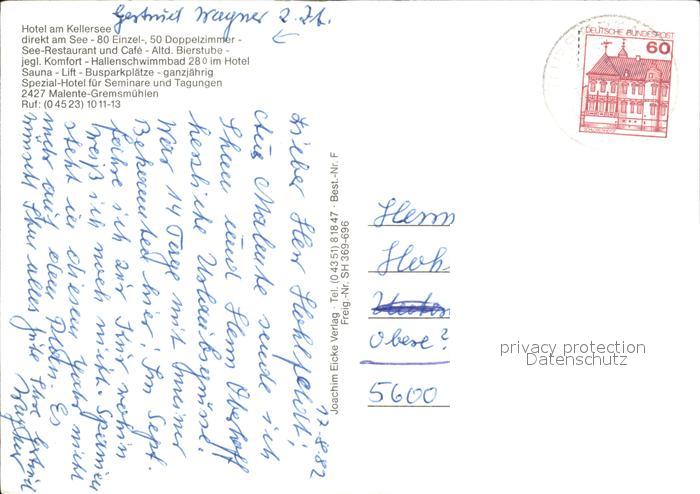 Gertrud Wagner z. Zt.
Hotel am Kellersee
direkt am See - 80 Einzel-, 50 Doppelzimmer -
See-Restaurant und Café - Altd. Bierstube -
jegl. Komfort - Hallenschwimmbad 28⁰ im Hotel
Sauna - Lift - Busparkplätze - ganzjährig
Spezial-Hotel für Seminare und Tagungen
2427 Malente-Gremsmühlen
Ruf: (0 45 23) 10 11-13
17.8.82
Lieber Herr Hohlfeldt!
Aus Malente sende ich
Ihnen und Herrn Oberhoff
herzliche Urlaubsgrüsse.
War 14 Tage mit meiner
Bekannten hier. Im Sept.
fahre ich zur Kur wohin
weiß ich noch nicht. Spanien
steht in diesem Jahr nicht
mehr auf dem Plan. Es
wünscht Ihnen alles Gute Ihre Gertrud
Wagner
Joachim Eicke Verlag · Tel. (0 43 51) 8 18 47 · Best.-Nr. F
Freig.-Nr. SH 369-696
DEUTSCHE BUNDESPOST
60
Herrn
Hoh
Obere?
5600
privacy protection
Datenschutz